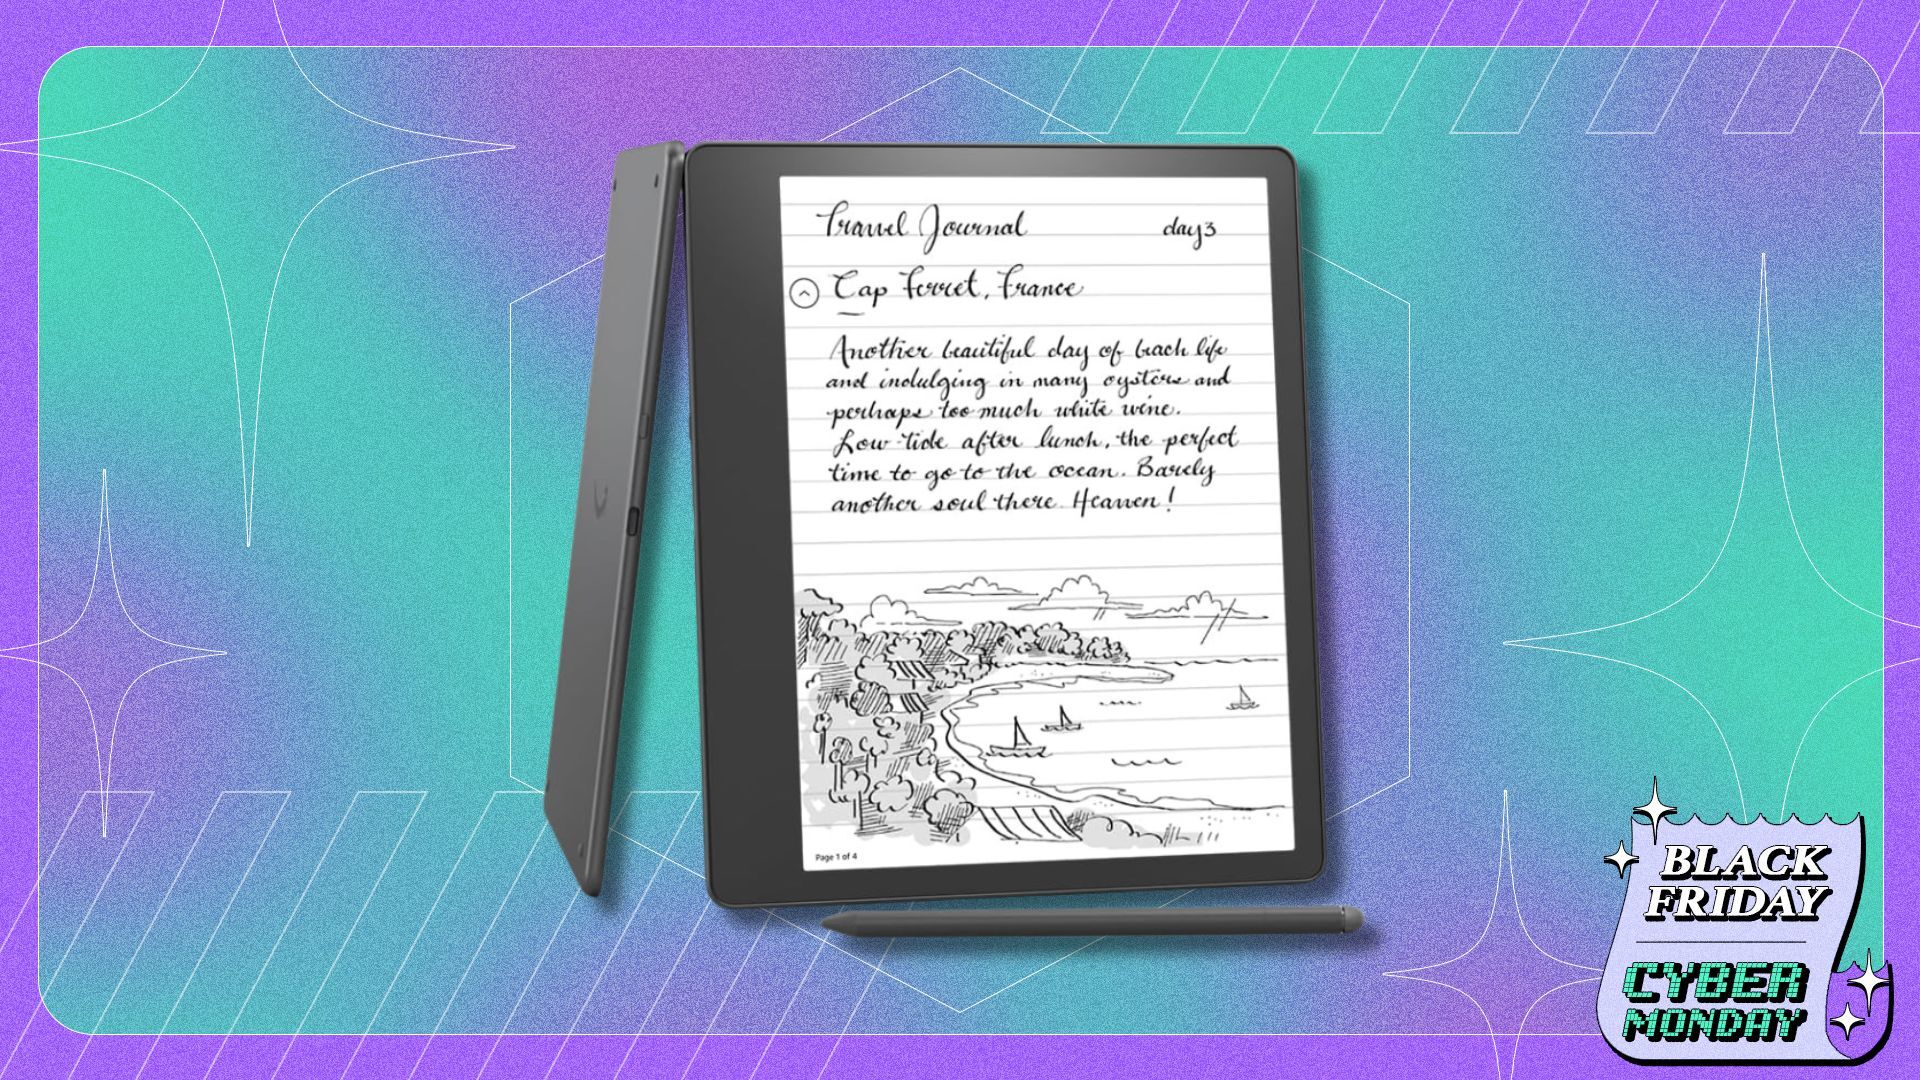 Travel Journal day 3
Cap Ferret, France
Another beautiful day of beach life
and indulging in many oysters and
perhaps too much white wine.
Low tide after lunch, the perfect
time to go to the ocean. Barely
another soul there. Heaven!
Page 1 of 4
BLACK
FRIDAY
CYBER
MONDAY